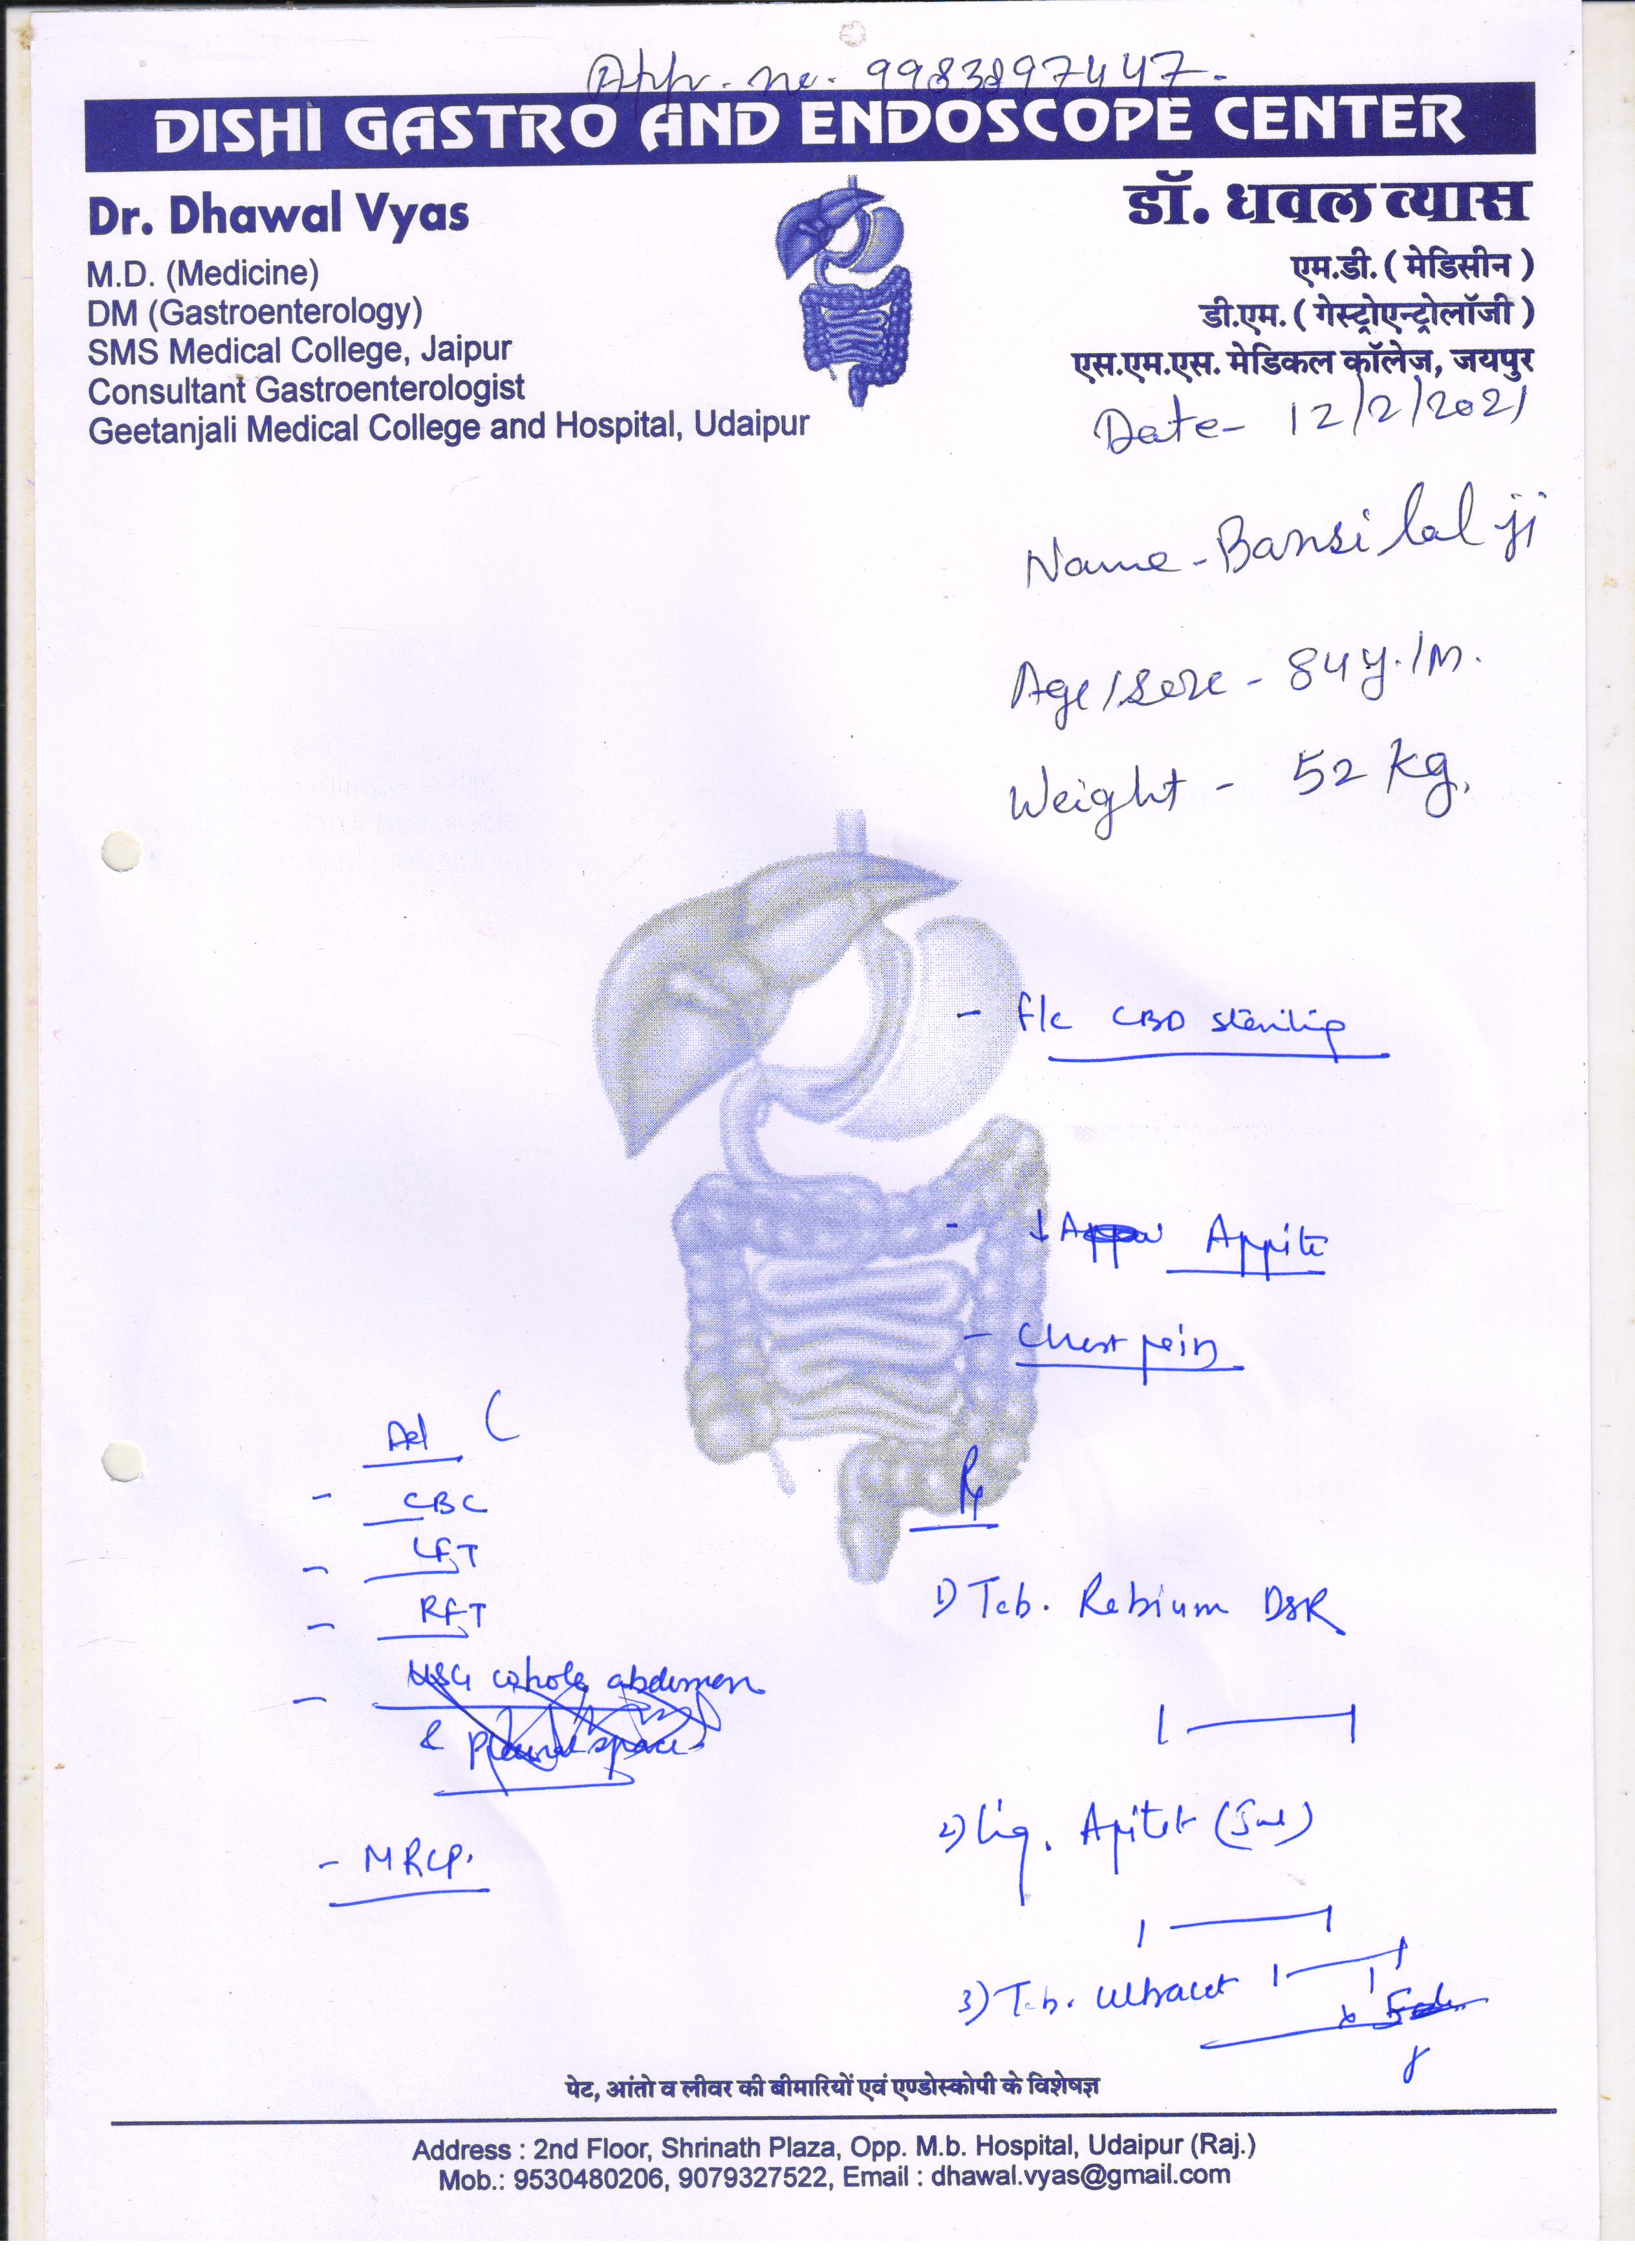 App. no. 9983897447.
DISHI GASTRO AND ENDOSCOPE CENTER
Dr. Dhawal Vyas
M.D. (Medicine)
DM (Gastroenterology)
SMS Medical College, Jaipur
Consultant Gastroenterologist
Geetanjali Medical College and Hospital, Udaipur
डॉ. धवल व्यास
एम.डी. ( मेडिसीन )
डी.एम. ( गेस्ट्रोएन्ट्रोलॉजी )
एस.एम.एस. मेडिकल कॉलेज, जयपुर
Date- 12/2/2021
Name - Bansi lal ji
Age/Sex - 84y./M.
Weight - 52 kg.
- f/c CBD
- ↓ Appite
- Chest pain
Ad
- CBC
- LFT
- RFT
- USG whole abdomen
& pleural space
- MRCP.
Rx
1) Tab. Rebium DSR
2) Liq. Apitet
3) Tab. Ultracet
पेट, आंतो व लीवर की बीमारियों एवं एण्डोस्कोपी के विशेषज्ञ
Address : 2nd Floor, Shrinath Plaza, Opp. M.b. Hospital, Udaipur (Raj.)
Mob.: 9530480206, 9079327522, Email : dhawal.vyas@gmail.com